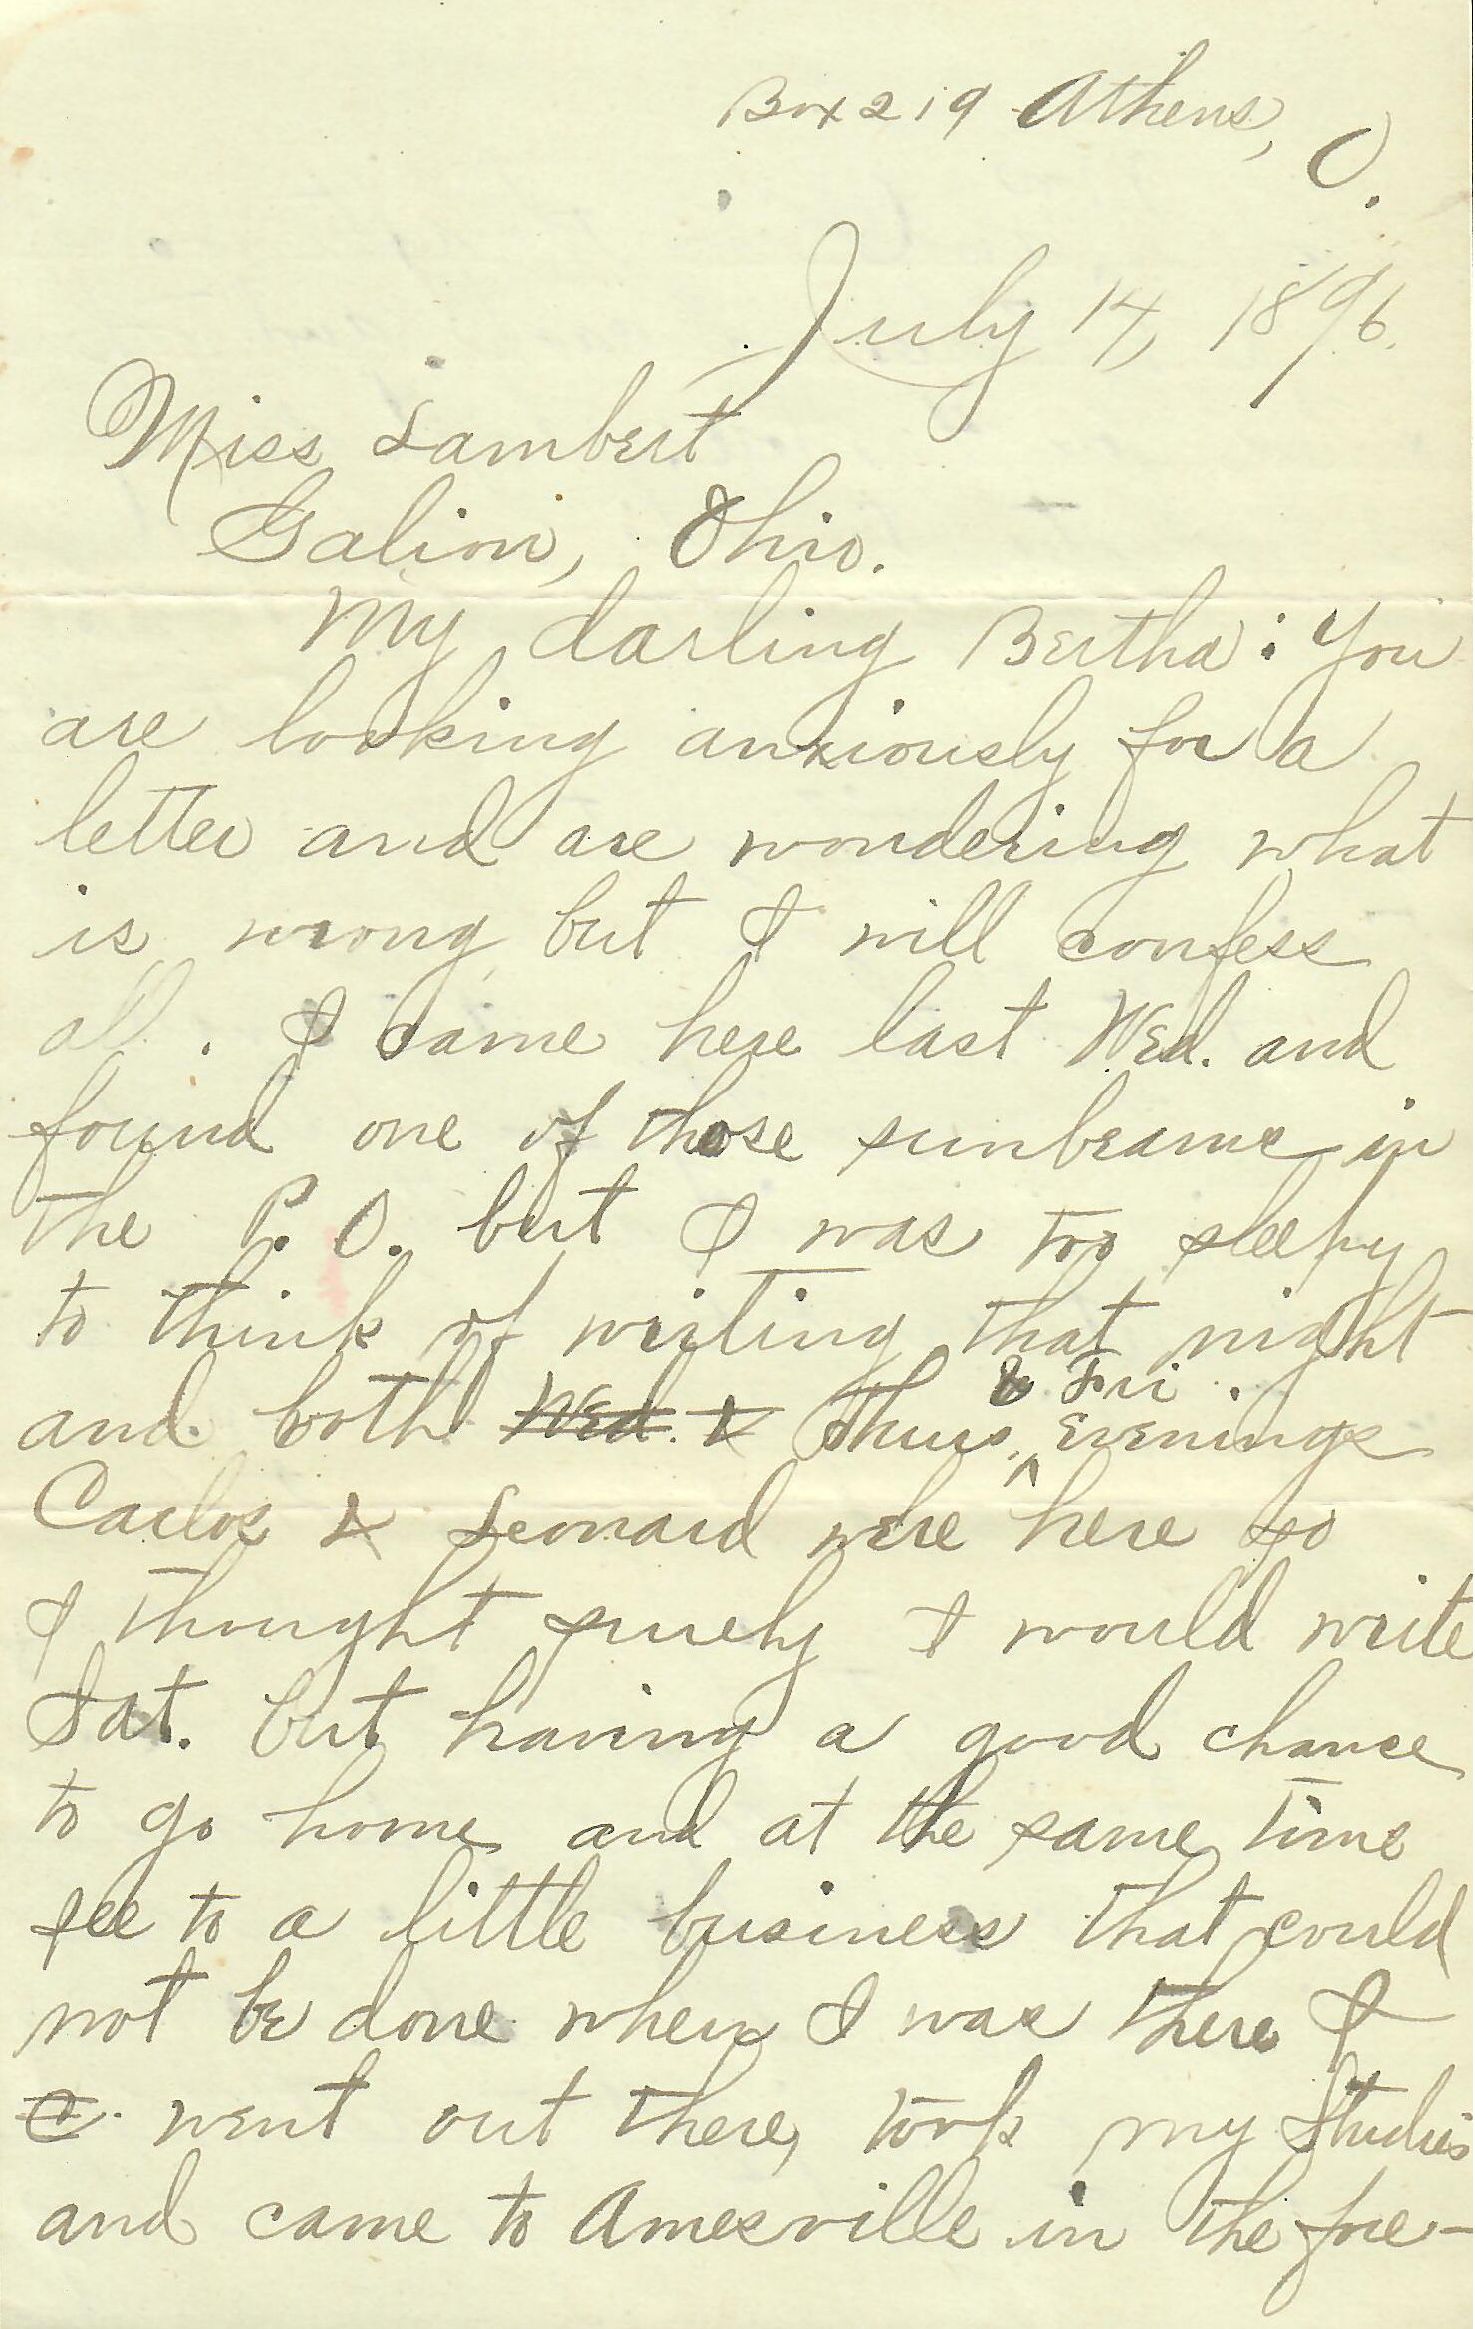 Box 219 Athens, O.
July 14, 1896.
Miss Lambert
Galion, Ohio.
My darling Bertha: You
are looking anxiously for a
letter and are wondering what
is wrong but I will confess
all. I came here last Wed. and
found one of those sunbeams in
the P. O. but I was too sleepy
to think of writing that night
& Fri.
and both Wed. & Thurs. ^ evenings
Carlos & Leonard were here so
I thought surely I would write
Sat. but having a good chance
to go home and at the same time
see to a little business that could
not be done when I was there I
c went out there, took my studies
and came to Amesville in the fore-